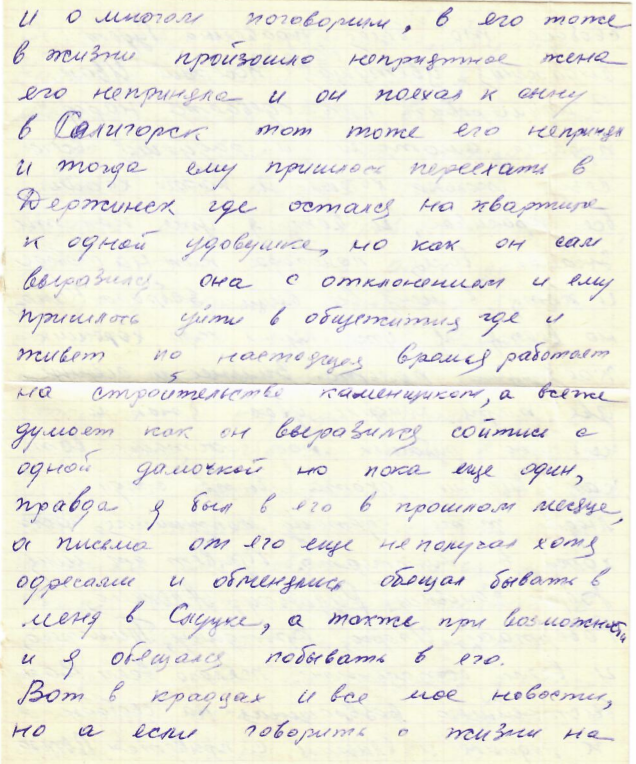 и о многом поговорим, в его тоже
в жизни произошло неприятное жена
его неприняла и он поехал к сыну
в Салигорск тот тоже его неприняя
и тогда ему пришлось переехать в
Держинск где остался на квартире
к одной удовушке, но как он сам
выразился она с отклонением и ему
пришлось уйти в общежития где и
живет по настоящея время работает
на строительстве каменщиком, а всеже
думает как он выразился сойтись с
одной дамочкой но пока еще один,
правда я был в его в прошлом месяце,
а письма от его еще неполучал хотя
адресами и обменялись обещал бывать в
меня в Слуцке, а также при возможности
и я обещался побывать в его.
Вот в крадцах и все мое новости,
но а если говорить о жизни на